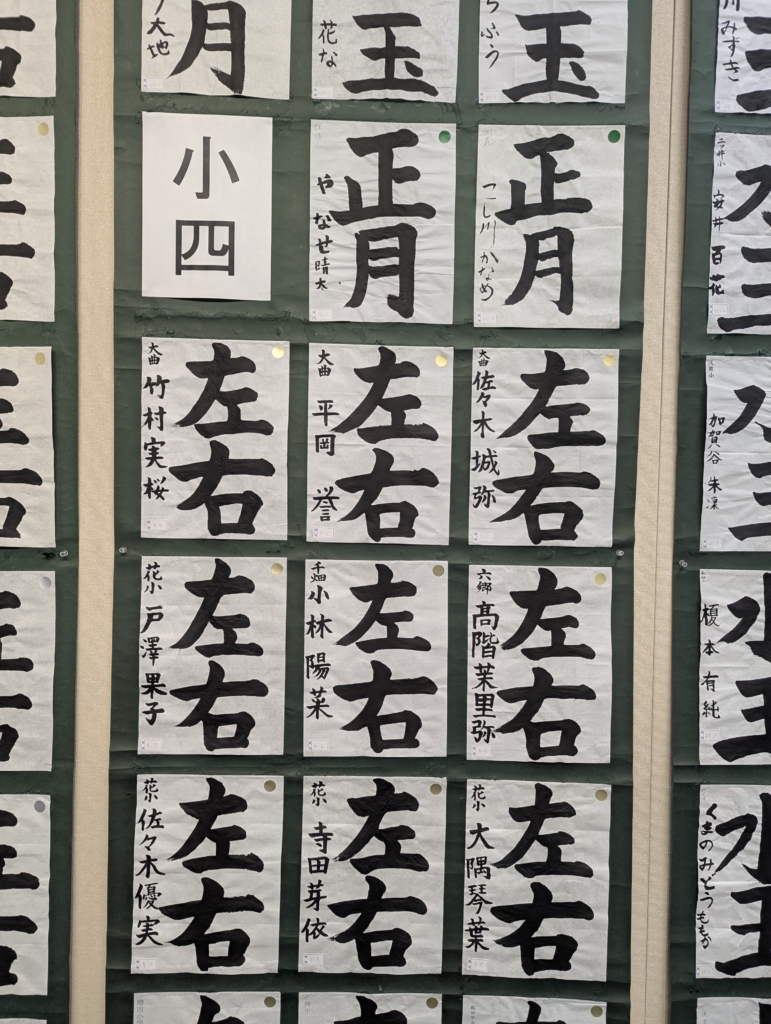 大地
月
花な
玉
ふう
玉
みずき
小四
やなせ晴太
正月
こし川かなめ
正月
安井百花
大曲
竹村実桜
左右
大曲
平岡誉
左右
大曲
佐々木城弥
左右
加賀谷朱凜
花小
戸澤果子
左右
千畑
小林陽菜
左右
六郷
高階茉里弥
左右
榎本有純
水玉
花小
佐々木優実
左右
花小
寺田芽依
左右
花小
大隅琴葉
左右
くまのみどうももか
水玉